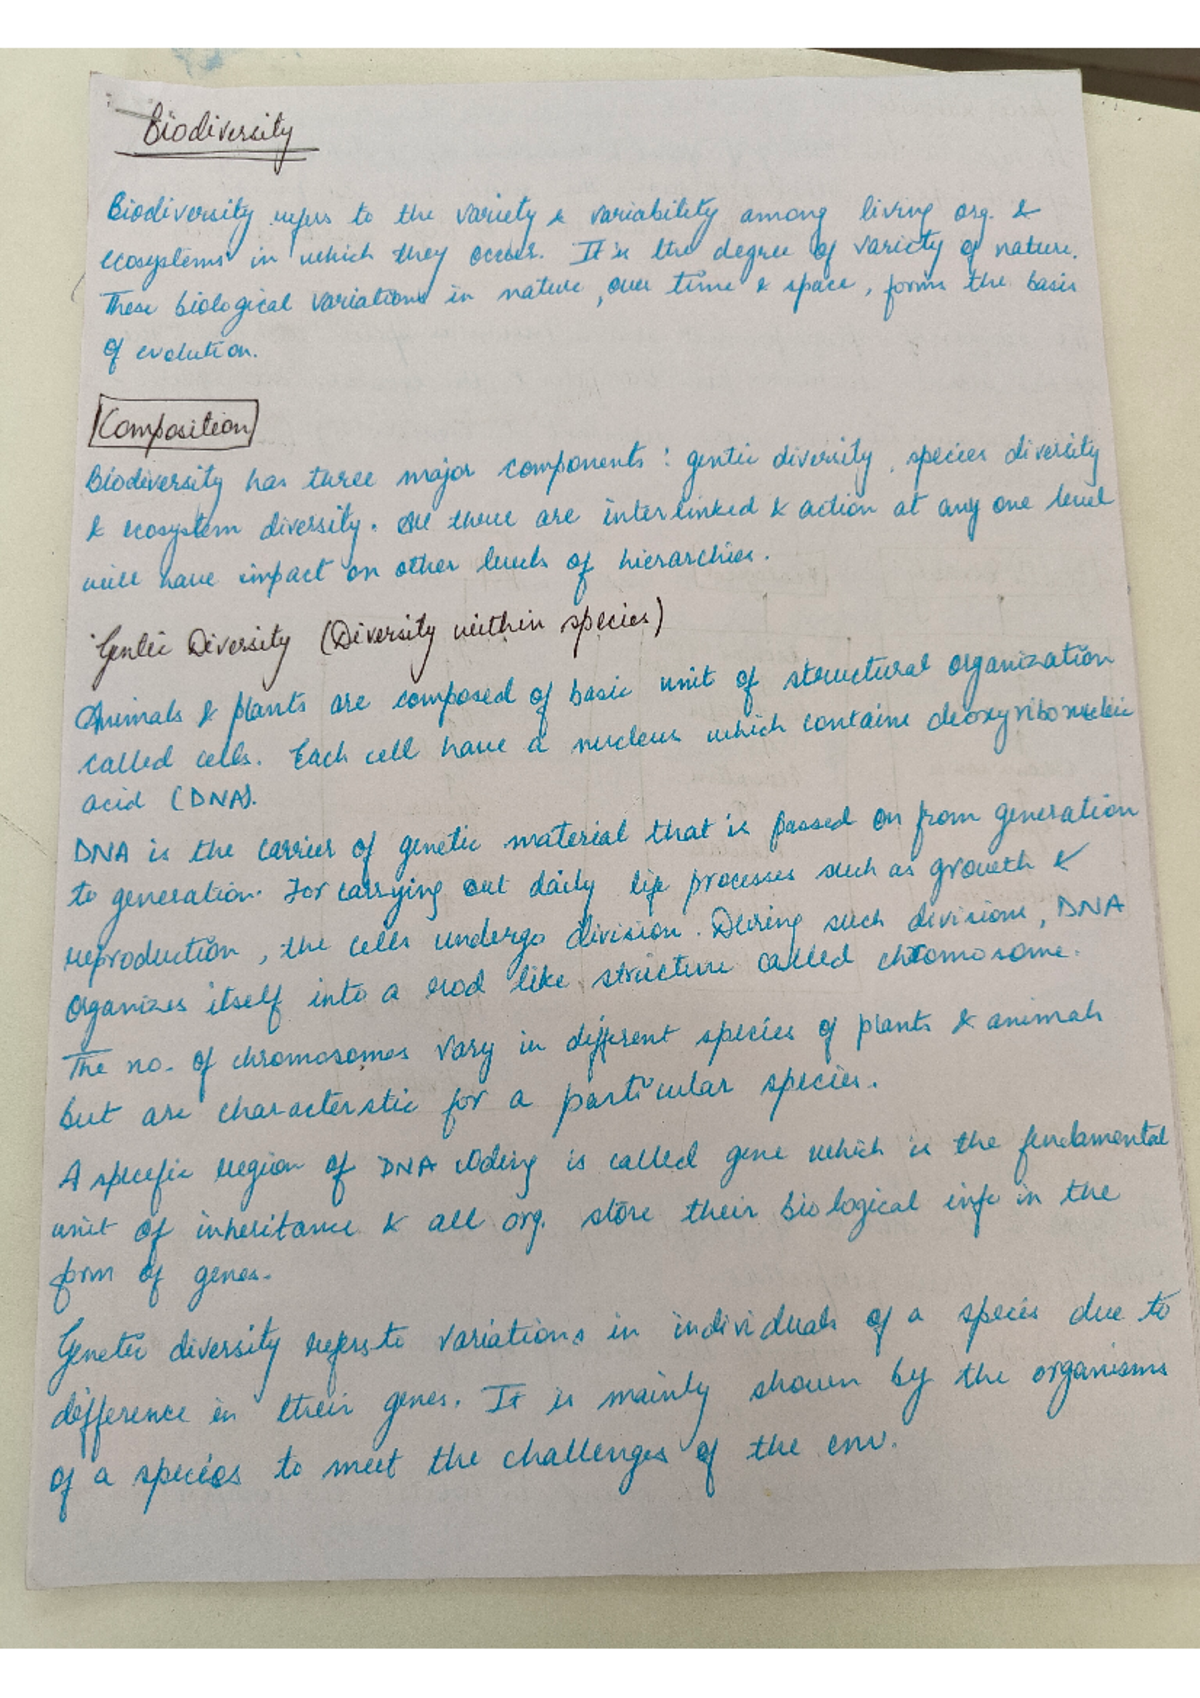 Biodiversity
Biodiversity refers to the variety & variability among living org. &
ecosystems in which they occur. It is the degree of variety of nature.
These biological variations in nature, over time & space, forms the basis
of evolution.
Composition
Biodiversity has three major components : gentic diversity, species diversity
& ecosystem diversity. All these are interlinked & action at any one level
will have impact on other levels of hierarchies.
Gentic Diversity (Diversity within species)
Animals & plants are composed of basic unit of structural organization
called cells. Each cell have a nucleus which contains deoxyribonucleic
acid (DNA).
DNA is the carrier of genetic material that is passed on from generation
to generation. For carrying out daily life processes such as growth &
reproduction, the cells undergo division. During such divisions, DNA
organizes itself into a rod like structure called chromosome.
The no. of chromosomes vary in different species of plants & animals
but are characterstic for a particular species.
A specific region of DNA coding is called gene which is the fundamental
unit of inheritance & all org. store their biological info in the
form of genes.
Genetic diversity refers to variations in individuals of a species due to
difference in their genes. It is mainly shown by the organisms
of a species to meet the challenges of the env.